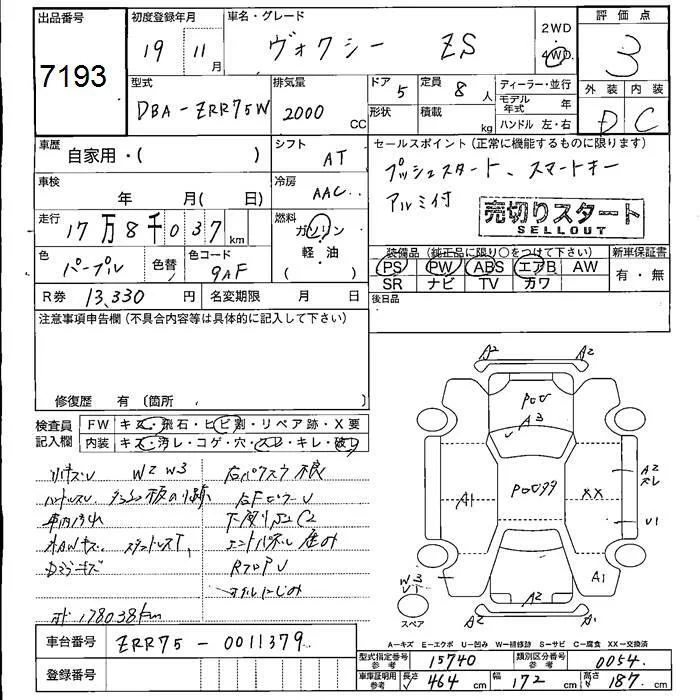 出品番号 初度登録年月 車名・グレード 2WD 評価点
7193 19 11月 ヴォクシー ZS 4WD 3
型式 排気量 ドア 5 定員 8人 ディーラー・並行 外装 内装
DBA-ZRR75W 2000 CC 形状 積載 kg モデル年式 年 D C
ハンドル 左・右
車歴 自家用・( ) シフト AT セールスポイント (正常に機能するものに限ります)
プッシュスタート、スマートキー
車検 年 月( 日) 冷房 AAC アルミ付
走行 17万8千037km 燃料 ガソリン 軽・油 ( ) 売切りスタート
SELLOUT
色 パープル 色替 色コード 9AF 装備品 (純正品に限り○をつけて下さい) 新車保証書
PS PW ABS エアB AW 有・無
SR ナビ TV カワ
R券 13,330円 名変期限 月 日 後日品
注意事項申告欄 (不具合内容等は具体的に記入して下さい)
修復歴 有 (箇所
検査員記入欄 FW キズ・飛石・ヒビ割・リペア跡・X要
内装 キズ・汚レ・コゲ・穴・スレ・キレ・破レ
W2 W3
車内汚れ
カミラキズ
オイルにじみ
178038km
A2 A2
P00
A3
A1 P0099 XX
A2
V1
A1
W3
V1
スペア
A2
A2 A1
A-キズ E-エクボ U-凹み W-補修跡 S-サビ C-腐食 XX-交換済
車台番号 ZRR75-0011379
型式指定番号 参考 15740 類別区分番号 参考 0054
登録番号 車庫証明用 参考 長さ 464 cm 幅 172 cm 高さ 187 cm